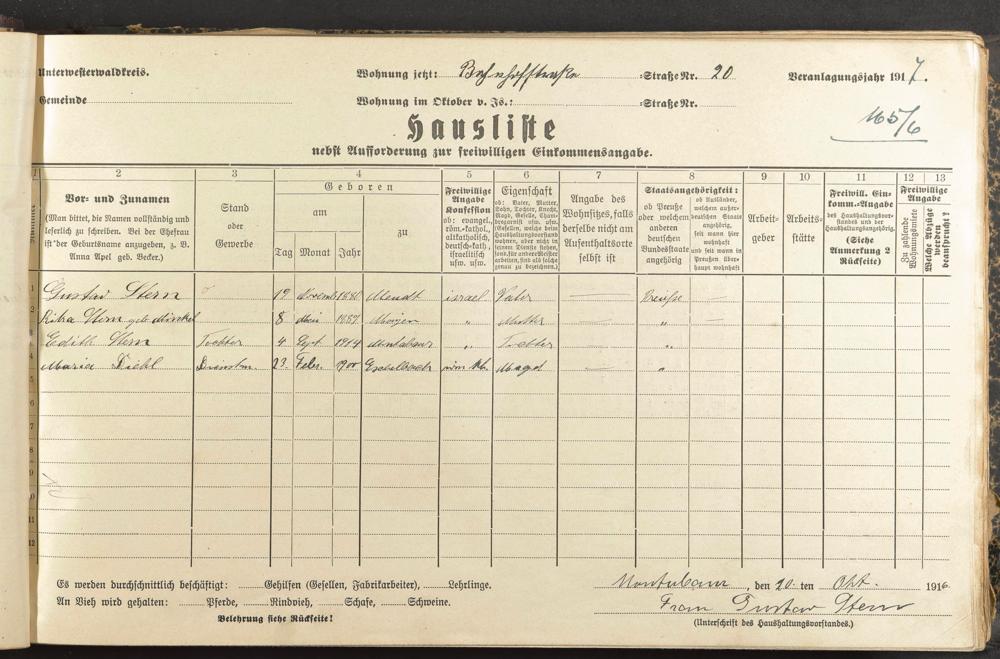 Unterwesterwaldkreis. Wohnung jetzt: Bahnhofstraße =Straße Nr. 20 Veranlagungsjahr 1917.
Gemeinde Wohnung im Oktober v. Js.: =Straße Nr.
165/6
Hausliste
nebst Aufforderung zur freiwilligen Einkommensangabe.
1 2 3 4 5 6 7 8 9 10 11 12 13
Nummer
Vor- und Zunamen
(Man bittet, die Namen vollständig und
leserlich zu schreiben. Bei der Ehefrau
ist der Geburtsname anzugeben, z. B.
Anna Apel geb. Becker.)
Stand
oder
Gewerbe
Geboren
am zu
Tag Monat Jahr
Freiwillige
Angabe
Konfession
ob: evangel.,
röm.-kathol.,
altkatholisch,
deutsch-kath.,
israelitisch
usw. usw.
Eigenschaft
ob: Vater, Mutter,
Sohn, Tochter, Knecht,
Magd, Geselle, Cham-
bregarnist usw. usw.
(Gesellen, welche beim
Haushaltungsvorstand
wohnen, aber nicht in
seinen Diensten stehen,
sond. für andere Meister
arbeiten, sind als solche
genau zu bezeichnen.)
Angabe des
Wohnsitzes, falls
derselbe nicht am
Aufenthaltsorte
selbst ist
Staatsangehörigkeit:
ob Preuße
oder welchem
anderen
deutschen
Bundesstaate
angehörig
ob Ausländer,
welchem außer-
deutschen Staate
angehörig,
seit wann hier
wohnhaft
und seit wann in
Preußen über-
haupt wohnhaft
Arbeit-
geber
Arbeits-
stätte
Freiwill. Ein-
komm.-Angabe
des Haushaltungsvor-
standes und der
Haushaltungsangehörig.
(Siehe
Anmerkung 2
Rückseite)
Freiwillige
Angabe
Zu zahlende
Wohnungsmiete
Welche Abzüge
werden
beansprucht?
1 Gustav Stern 19 Novemb 1880 Mendt israel Vater — Preuße —
2 Rika Stern geb. Minkel 8 Mai 1887 Mayen " Mutter — " —
3 Edith Stern Tochter 4 Sept. 1914 Montabaur " Tochter — "
4 Maria Diehl Dienstm. 23. Febr. 900 Eschelbach röm. kth. Magd — "
5
6
7
8
9
10
11
12
Es werden durchschnittlich beschäftigt: Gehilfen (Gesellen, Fabrikarbeiter), Lehrlinge.
An Vieh wird gehalten: Pferde, Rindvieh, Schafe, Schweine.
Belehrung siehe Rückseite!
Montabaur, den 20. ten Okt. 1916.
Frau Gustav Stern
(Unterschrift des Haushaltungsvorstandes.)